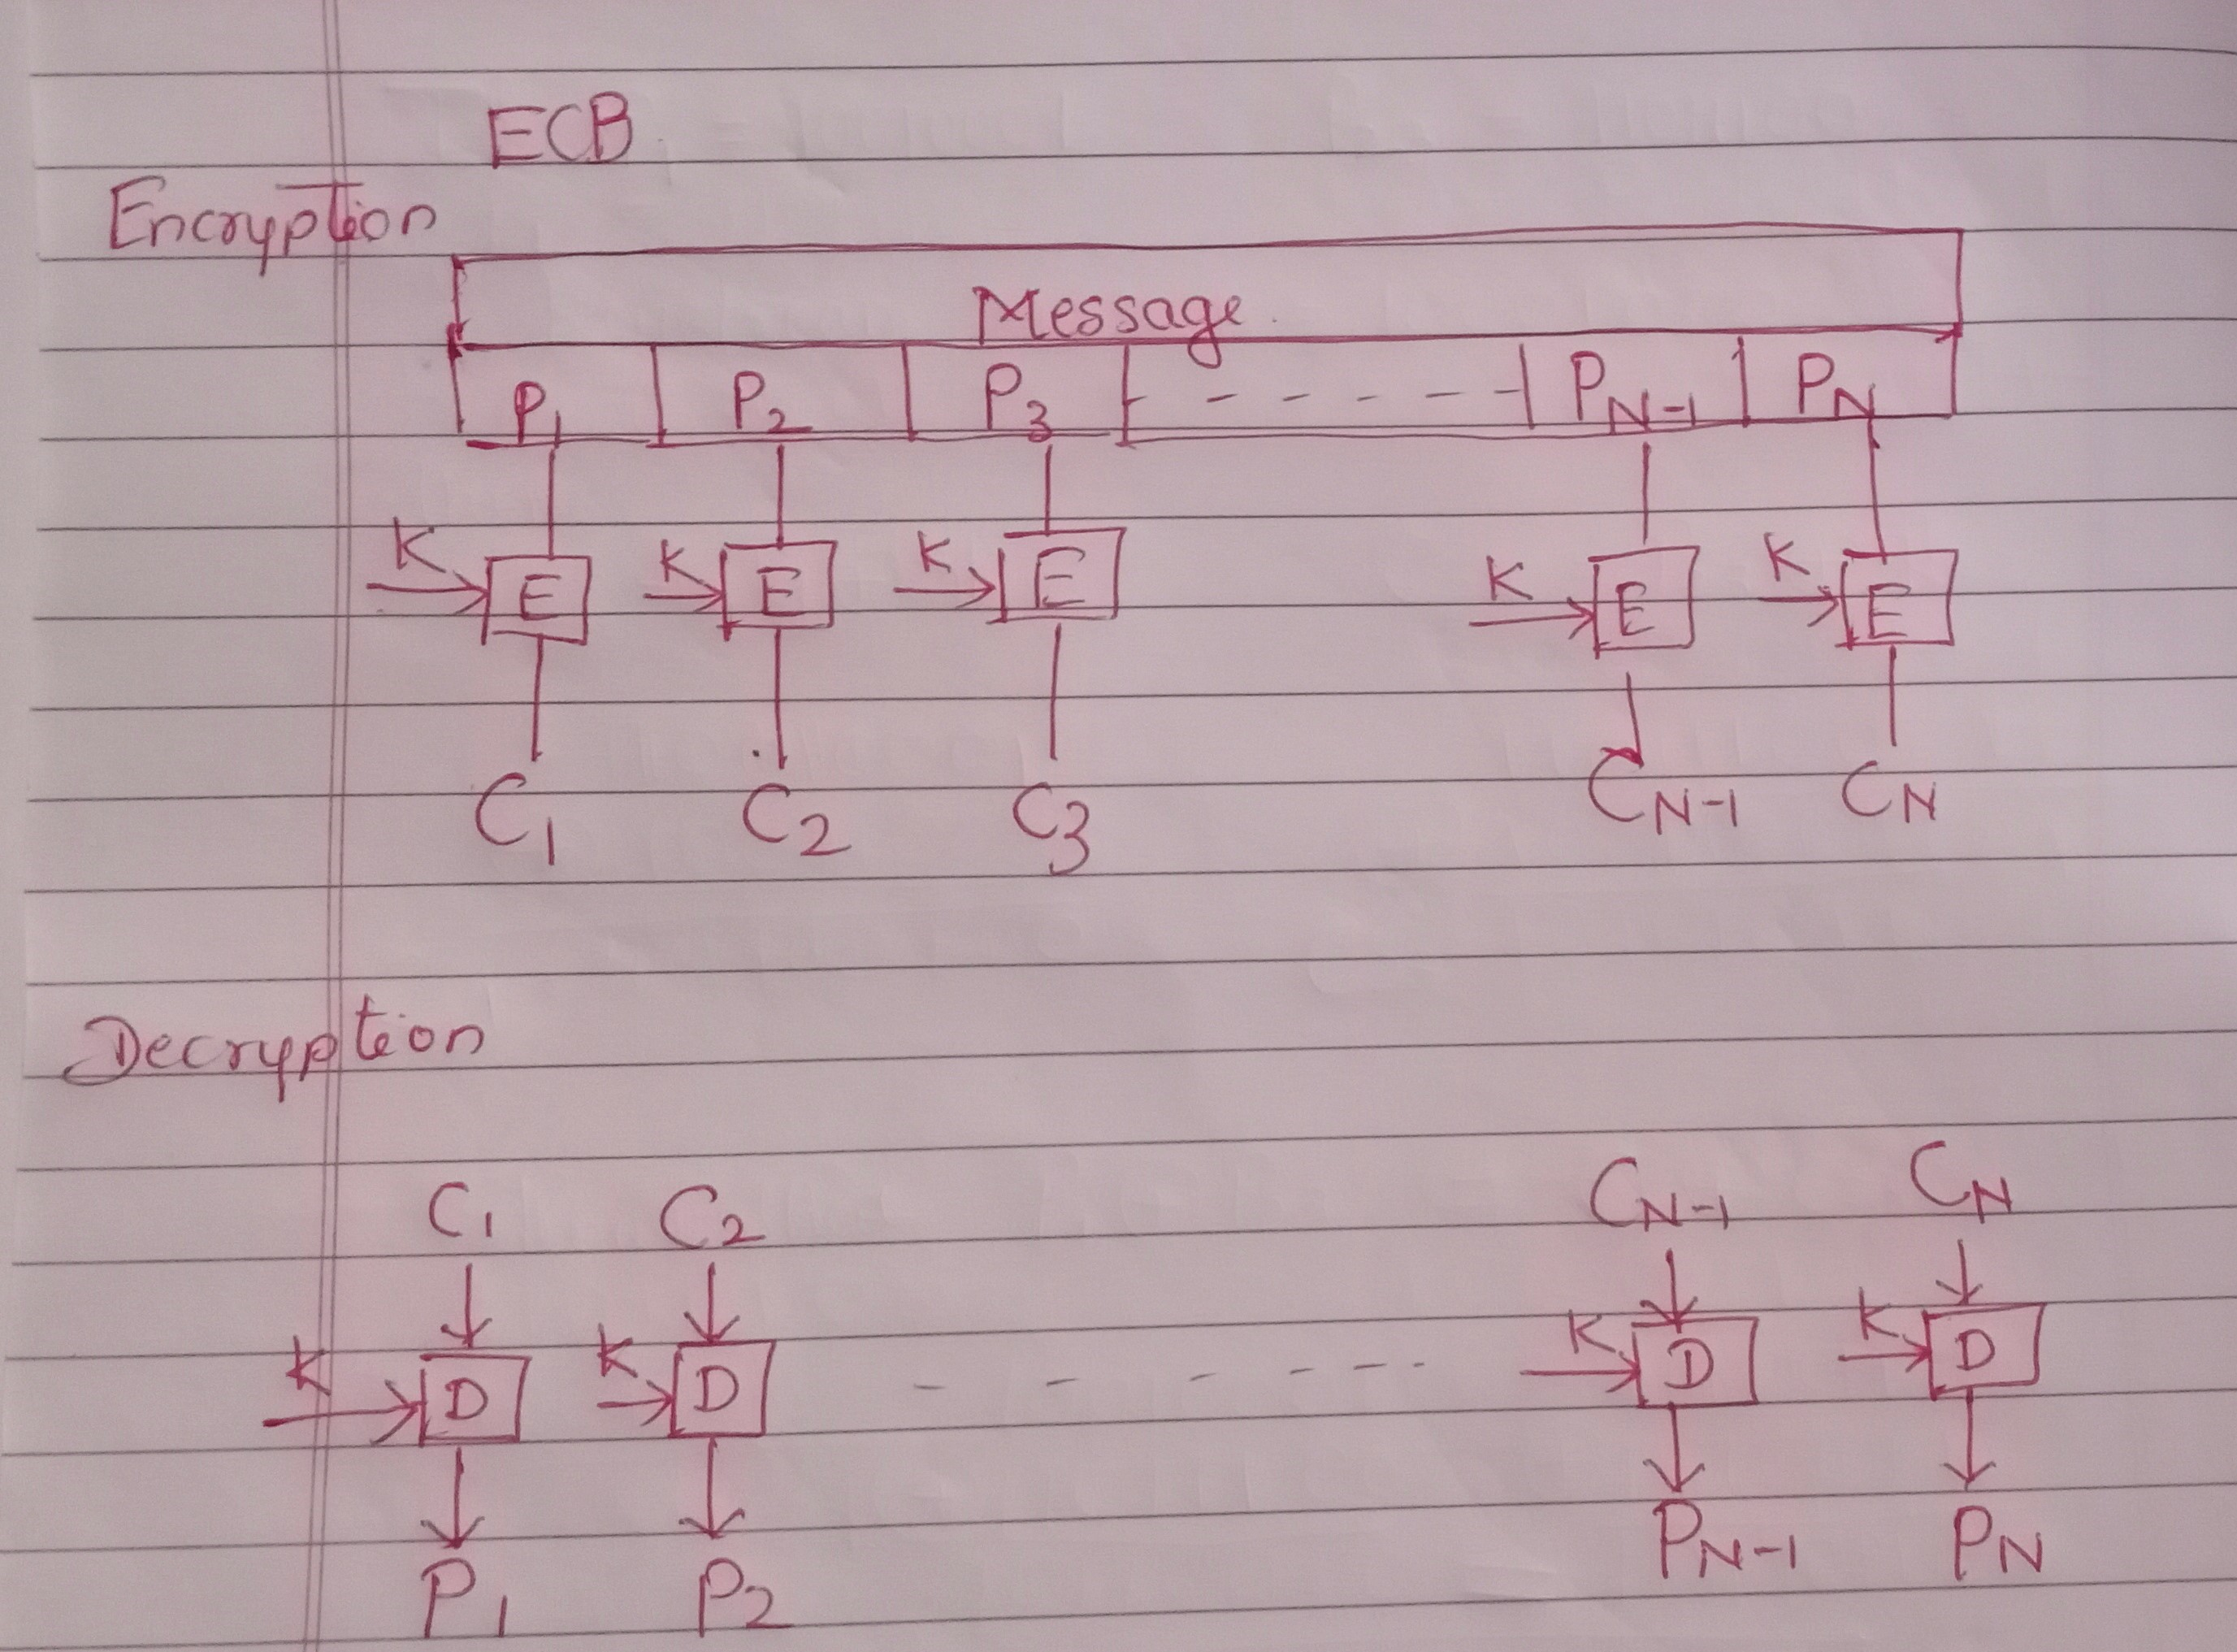 ECB
Encryption
Message
P1 P2 P3 - - - - - PN-1 PN
K K K K K
E E E E E
C1 C2 C3 CN-1 CN
Decryption
C1 C2 CN-1 CN
K K K K
D D - - - - - - D D
P1 P2 PN-1 PN